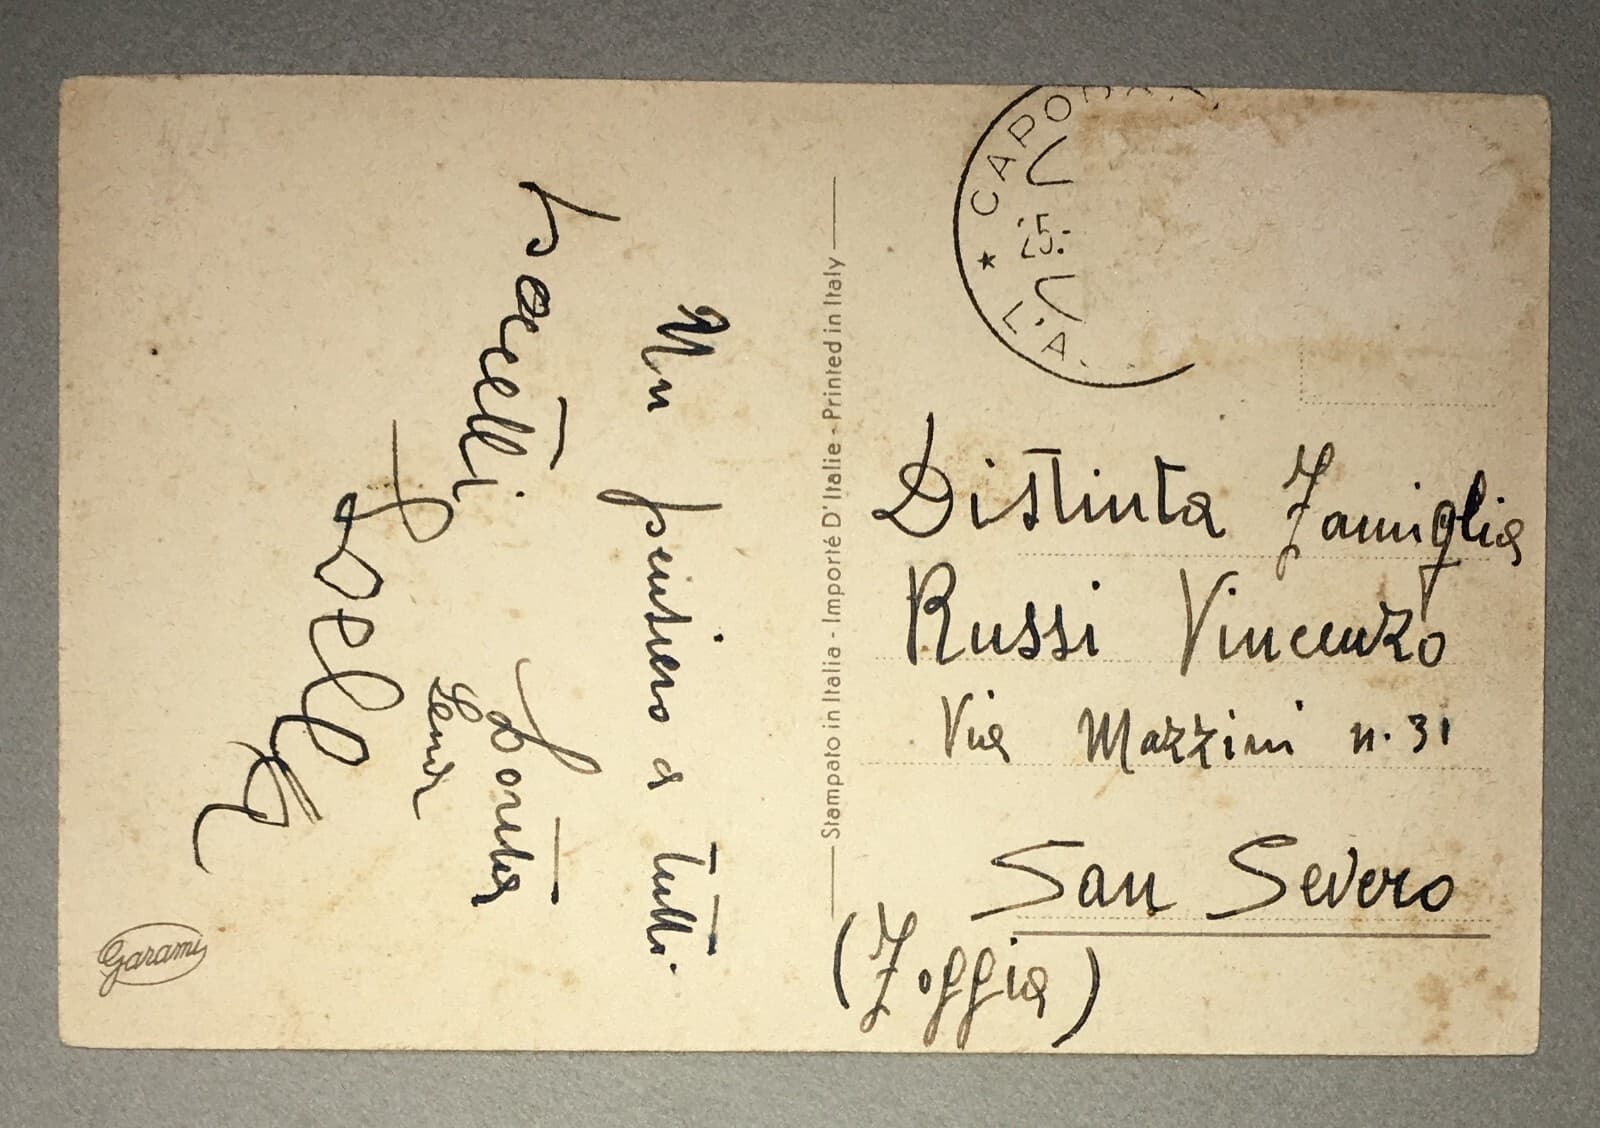 Un pensiero a tutti
Lorita
Lena
Stampato in Italia - Importé D'Italie - Printed in Italy
* CAPO
25.
L.A.
Distinta Famiglia
Russi Vincenzo
Via Mazzini n. 31
San Severo
(Foggia)
Garami